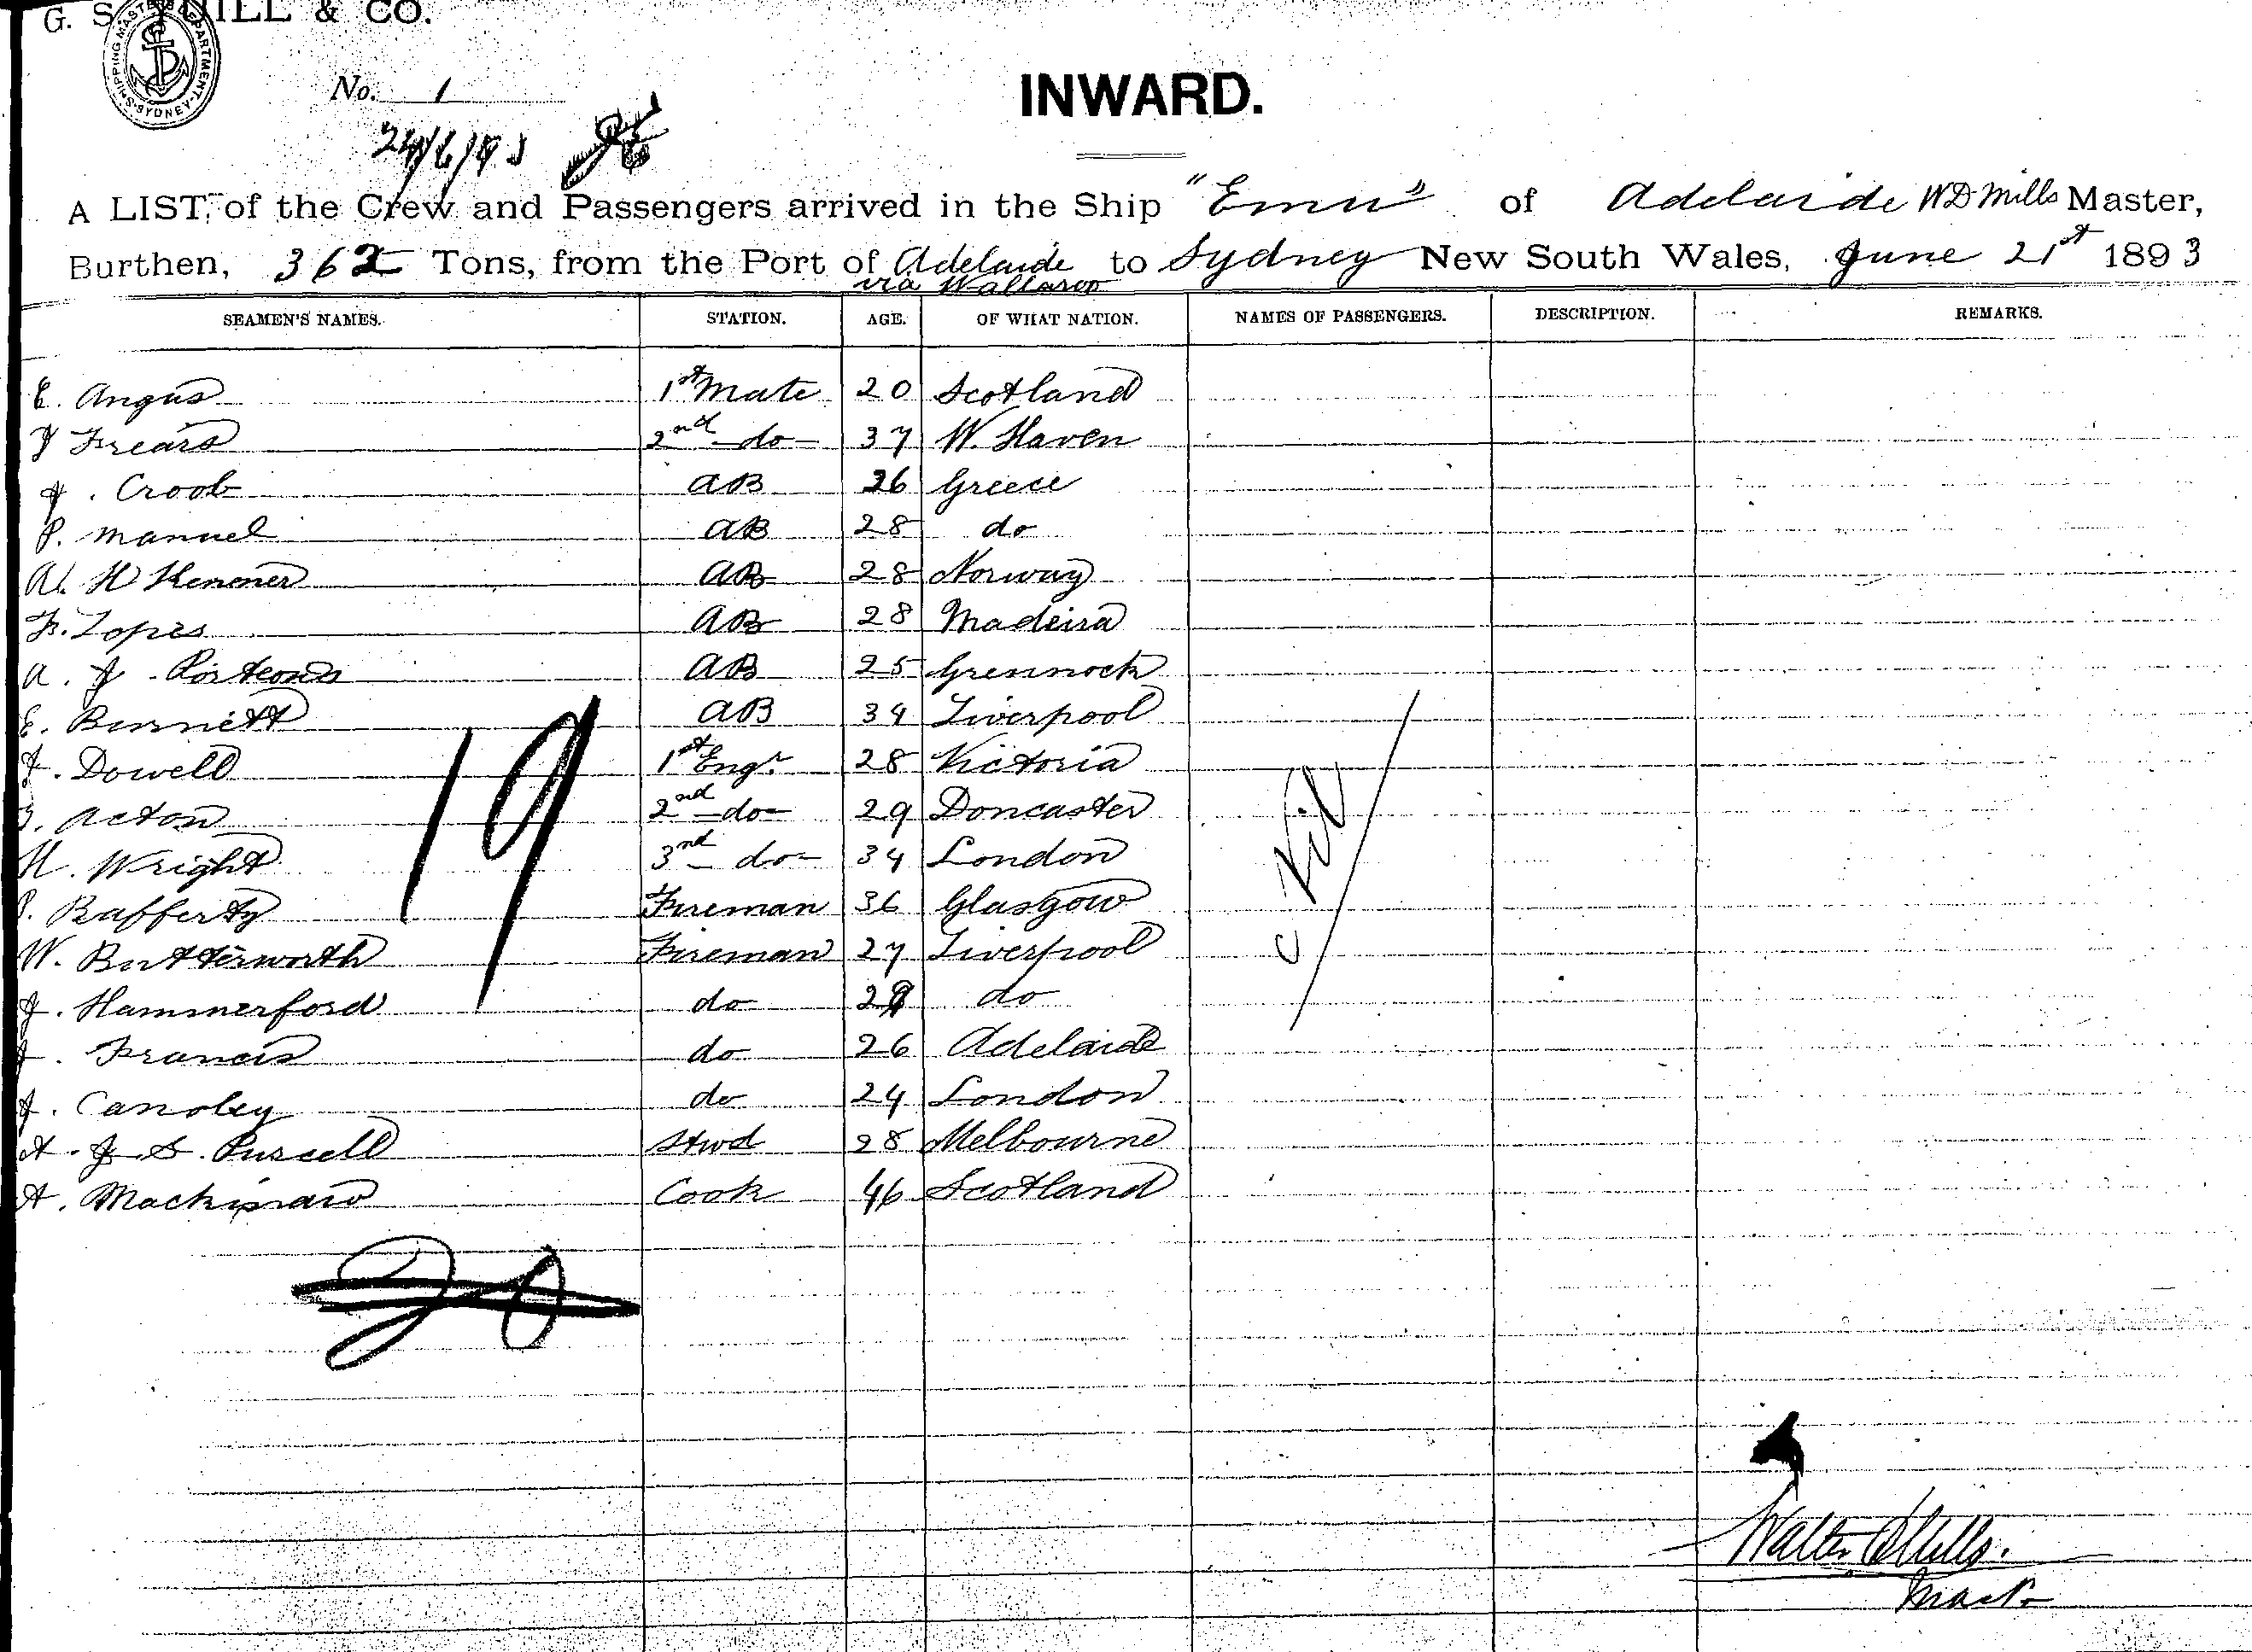 G. S. YUILL & CO.
SHIPPING MASTER'S DEPARTMENT SYDNEY
No. 1
INWARD.
24/6/93
A LIST, of the Crew and Passengers arrived in the Ship "Emu" of Adelaide W D Mills Master,
Burthen, 362 Tons, from the Port of Adelaide to Sydney New South Wales, June 21st 1893
via Wallaroo
SEAMEN'S NAMES. STATION. AGE. OF WHAT NATION. NAMES OF PASSENGERS. DESCRIPTION. REMARKS.
E. Angus 1st Mate 20 Scotland
Frears 2nd do 37 W. Haven
J. Croob AB 26 Greece
P. Manuel AB 28 do
H AB 28 Norway
F. Lopes AB 28 Madeira
A. J. Porteous AB 25 Grennock
E. Bennett AB 34 Liverpool
J. Dowell 1st Engr 28 Victoria
Acton 2nd do 29 Doncaster
H. Wright 3rd do 34 London
Rafferty Fireman 36 Glasgow
W. Butterworth Fireman 27 Liverpool
J. Hammerford do do
J. Francis do 26 Adelaide
J. Canoley do 24 London
A. J. S. Purcell Stwd 28 Melbourne
A. Cook 46 Scotland
19
Nil
Walter D Mills.
Mastr